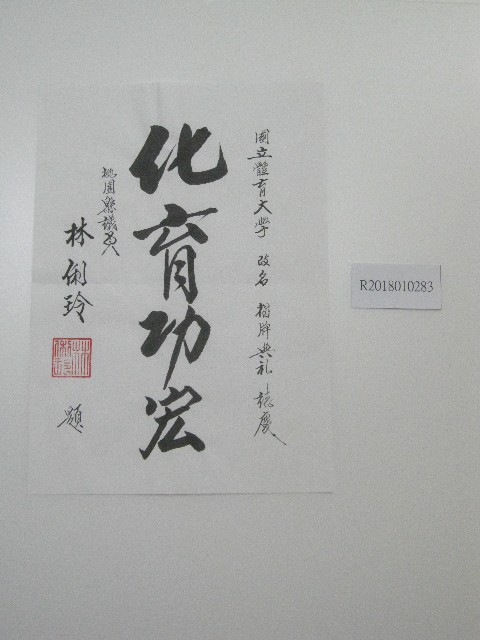 國立體育大學 改名 揭牌典礼誌慶
化育功宏
桃園縣議員
林俐玲
題
R2018010283